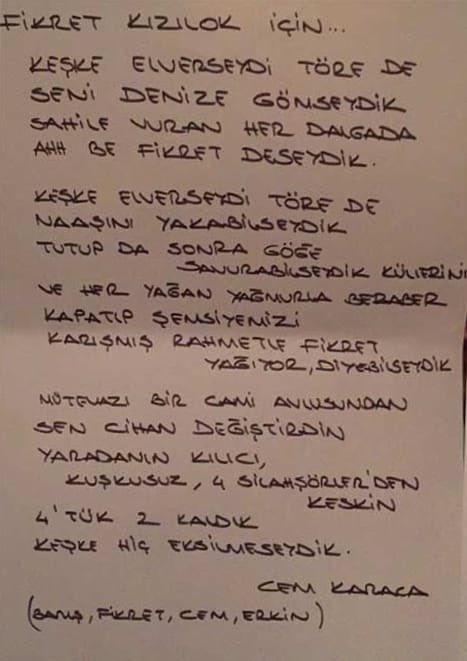 FİKRET KIZILOK İÇİN...
KEŞKE ELVERSEYDİ TÖRE DE
SENİ DENİZE GÖMSEYDİK
SAHİLE VURAN HER DALGADA
AHH BE FİKRET DESEYDİK.
KEŞKE ELVERSEYDİ TÖRE DE
NAAŞINI YAKABİLSEYDİK
TUTUP DA SONRA GÖĞE
SAVURABİLSEYDİK KÜLLERİNİ
VE HER YAĞAN YAĞMURLA BERABER
KAPATIP ŞEMSİYEMİZİ
KARIŞMIŞ RAHMETLE FİKRET
YAĞIYOR, DİYEBİLSEYDİK
MÜTEVAZI BİR CAMİ AVLUSUNDAN
SEN CİHAN DEĞİŞTİRDİN
YARADANIN KILICI,
KUŞKUSUZ, 4 SİLAHŞÖRLER'DEN
KESKİN
4'TÜK 2 KALDIK
KEŞKE HİÇ EKSİLMESEYDİK.
CEM KARACA
(BARIŞ, FİKRET, CEM, ERKİN)